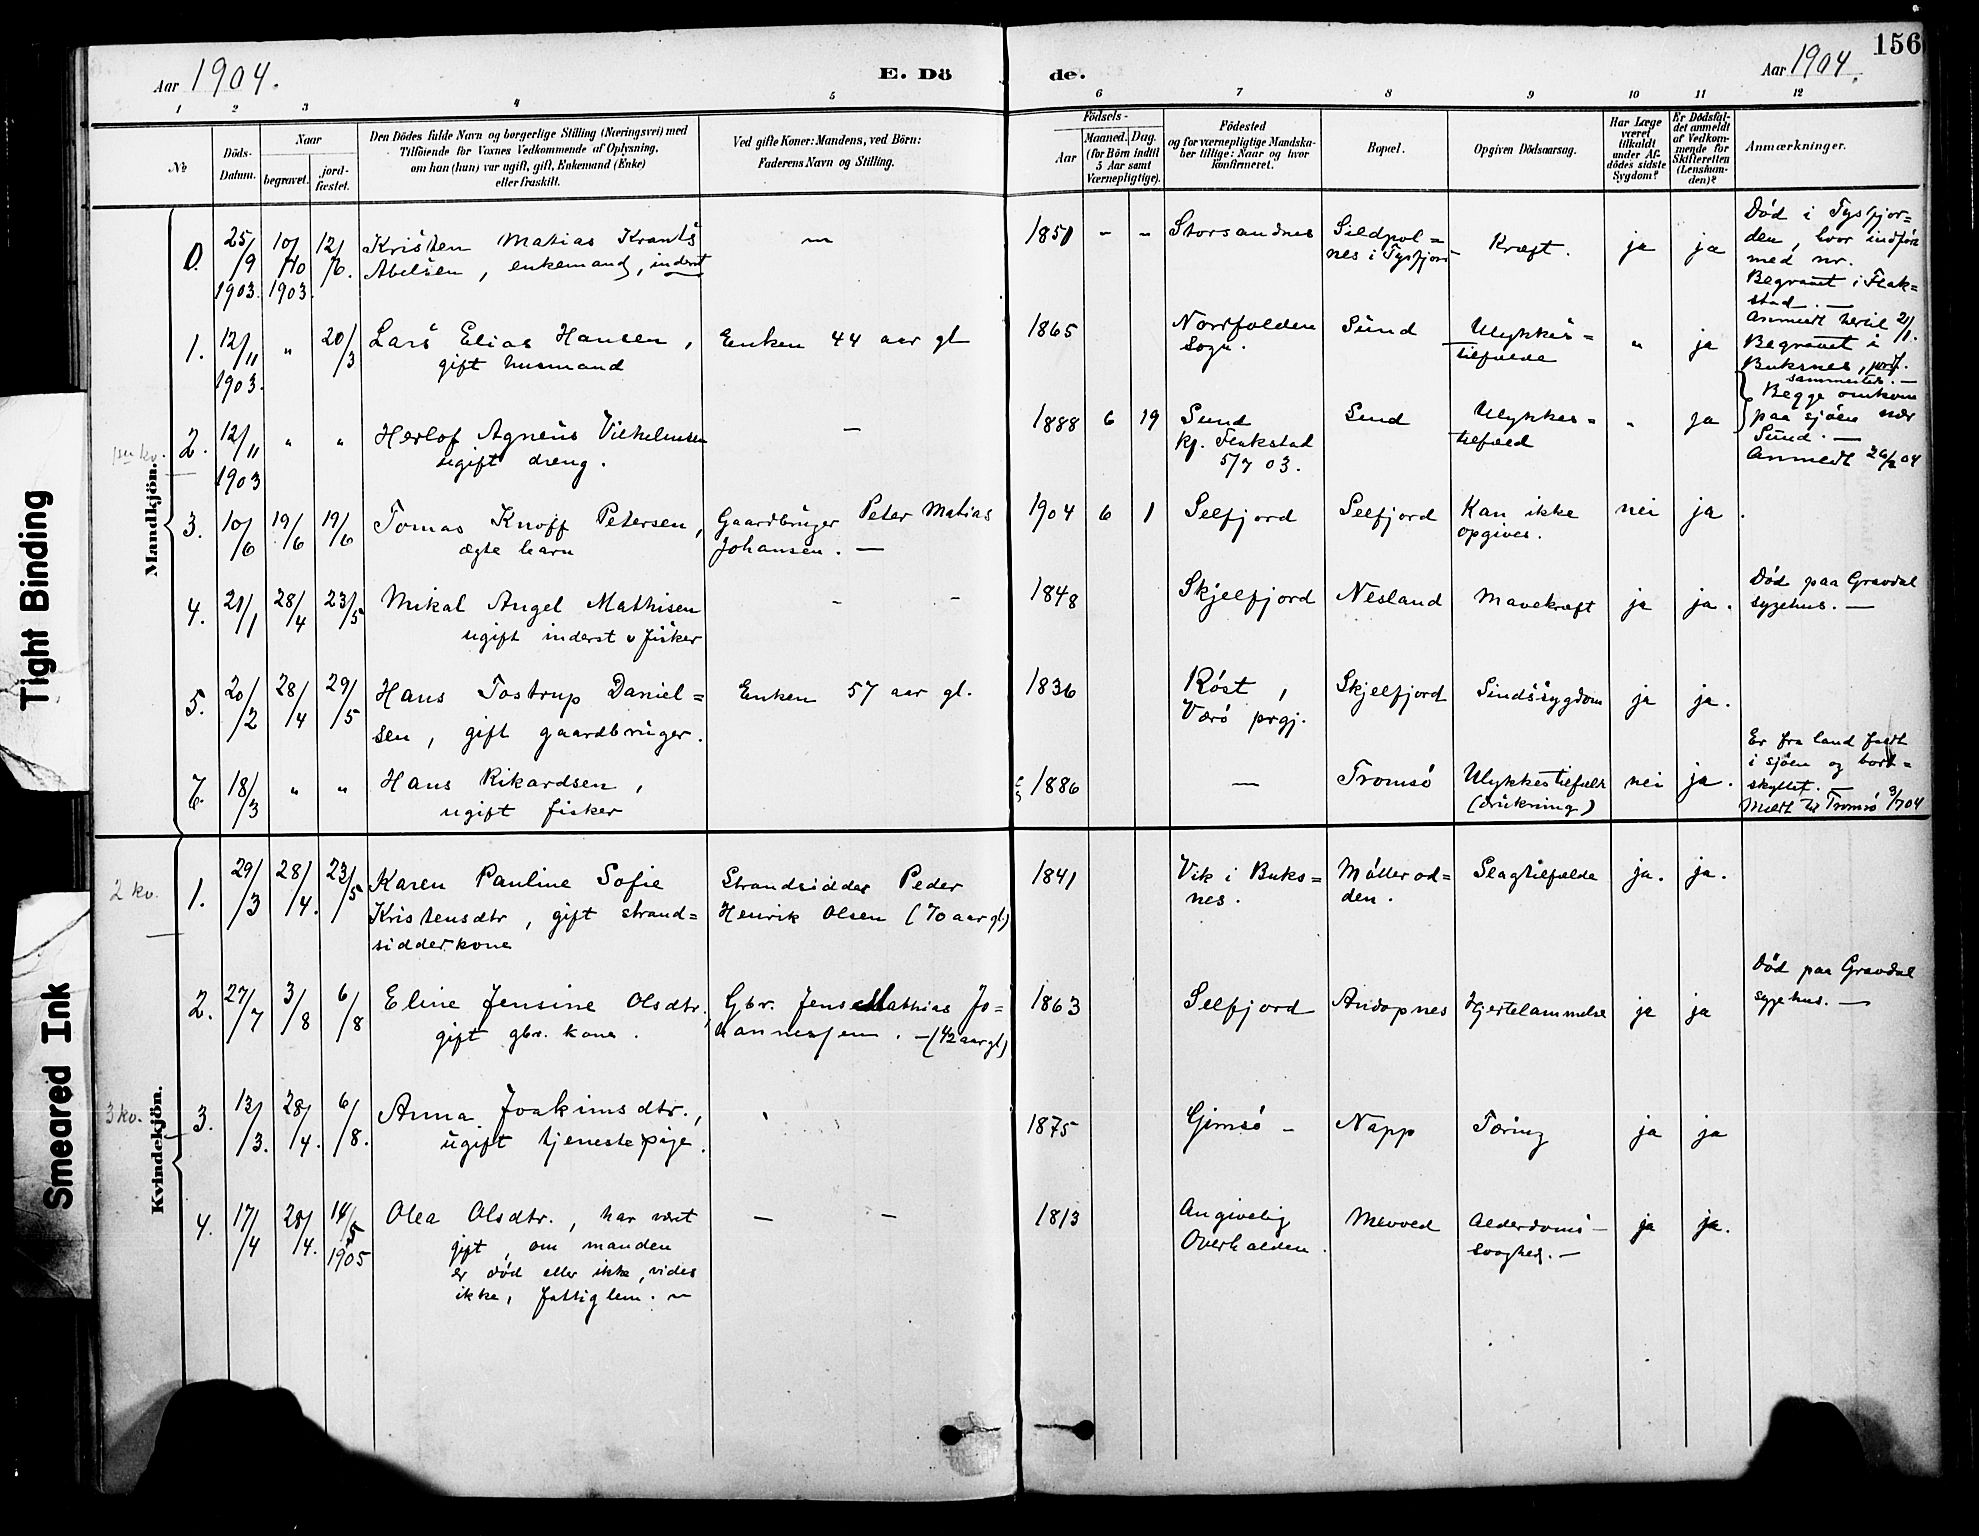 156
Aar 1904.
E. Dö
de.
Aar 1904.
1 2 3 4 5 6 7 8 9 10 11 12
№
Döds-
Datum.
Naar
begravet.
jord-
fæstet.
Den Dödes fulde Navn og borgerlige Stilling (Næringsvei) med
Tilföiende for Voxnes Vedkommende af Oplysning,
om han (hun) var ugift, gift, Enkemand (Enke)
eller fraskilt.
Ved gifte Koner: Mandens, ved Börn:
Faderens Navn og Stilling.
Födsels-
Aar
Maaned. Dag.
(for Börn indtil
5 Aar samt
Værnepligtige).
Födested
og for værnepligtige Mandska-
ber tillige: Naar og hvor
konfirmeret.
Bopæl.
Opgiven Dödsaarsag.
Har Læge
været
tilkaldt
under Af-
dödes sidste
Sygdom?
Er Dödsfal-
det anmeldt
af Vedkom-
mende for
Skifteretten
(Lensman-
den)?
Anmærkninger.
Mandkjön.
0. 25/9 1903. 10/10 1903. 12/6.
Kristen Matias Krants
Abelsen, enkemand, inderst
—
1851 - -
Storsandnes
Sildpol=
nes i Tysfjord
Kræft.
ja ja
Död i Tysfjor=
den, hvor indført
med nr.
Begravet i Flak=
stad. —
1. 12/11 1903. " 20/3
Lars Elias Hansen,
gift husmand
Enken 44 aar gl
1865
Norfolden
Sogn.
Sund
Ulykkes=
tilfælde
" ja
Anmeldt hertil 21/1.
Begravet i
Buksnes, jordf.
sammesteds. —
2. 12/11 1903 " "
Herlof Agnens Vilhelmsen
ugift dreng.
—
1888 6 19
Sund
kf. Flakstad
5/7 03.
Sund
Ulykkes=
tilfæld
" ja
Begge omkom
paa sjöen nær
Sund. —
Anmeldt 26/2 04
3. 10/6 19/6 19/6
Tomas Knoff Petersen,
ægte barn
Gaardbruger Peter Matias
Johansen. —
1904 6 1
Selfjord
Selfjord
Kan ikke
opgives.
nei ja.
4. 21/1 28/4 23/5
Mikal Angel Mathisen
ugift inderst v fisker
- -
1848
Skjelfjord
Nesland
Mavekræft
ja ja.
Död paa Gravdal
sygehus. —
5. 20/2 28/4 29/5
Hans Tostrup Daniel=
sen, gift gaardbruger.
Enken 57 aar gl.
1836
Röst,
Værö prgj.
Skjelfjord
Sindssygdom
ja ja.
18/3 " "
Hans Rikardsen,
ugift fisker
1886
—
Tromsö
Ulykkestilfælde
(drukning)
nei ja.
Er fra land faldt
i sjöen og bort=
skyllet. —
Meldt til Tromsö 3/7 04
Kvindekjön.
2 kv.
1. 29/3 28/4. 23/5
Karen Pauline Sofie
Kristensdtr, gift strand=
sidderkone
Strandsidder Peder
Henrik Olsen (70 aar gl)
1841
Vik i Buks=
nes.
Mölleror=
den.
Slagtilfælde
ja. ja.
2. 27/7 3/8 6/8
Eline Jensine Olsdtr.,
gift gbr. kone.
Gbr. Jens Mathias Jo=
hannessen. — (42 aar gl)
1863
Selfjord
Andopnes
Hjertelammelse
ja ja
Död paa Gravdal
sygehus. —
3 kv.
3. 13/3. 28/4. 6/8.
Anna Joakimsdtr.,
ugift tjenestepige.
1875
Gimsö -
Napp
Tæring
ja ja
4. 17/4 28/4. 14/5 1905
Olea Olsdtr., har været
gift, om manden
er död eller ikke, vides
ikke, fattiglem. —
— —
1813
Angivelig
Overhalden.
Mevved
Alderdoms-
svaghed. —
ja ja.
Tight Binding
Smeared Ink